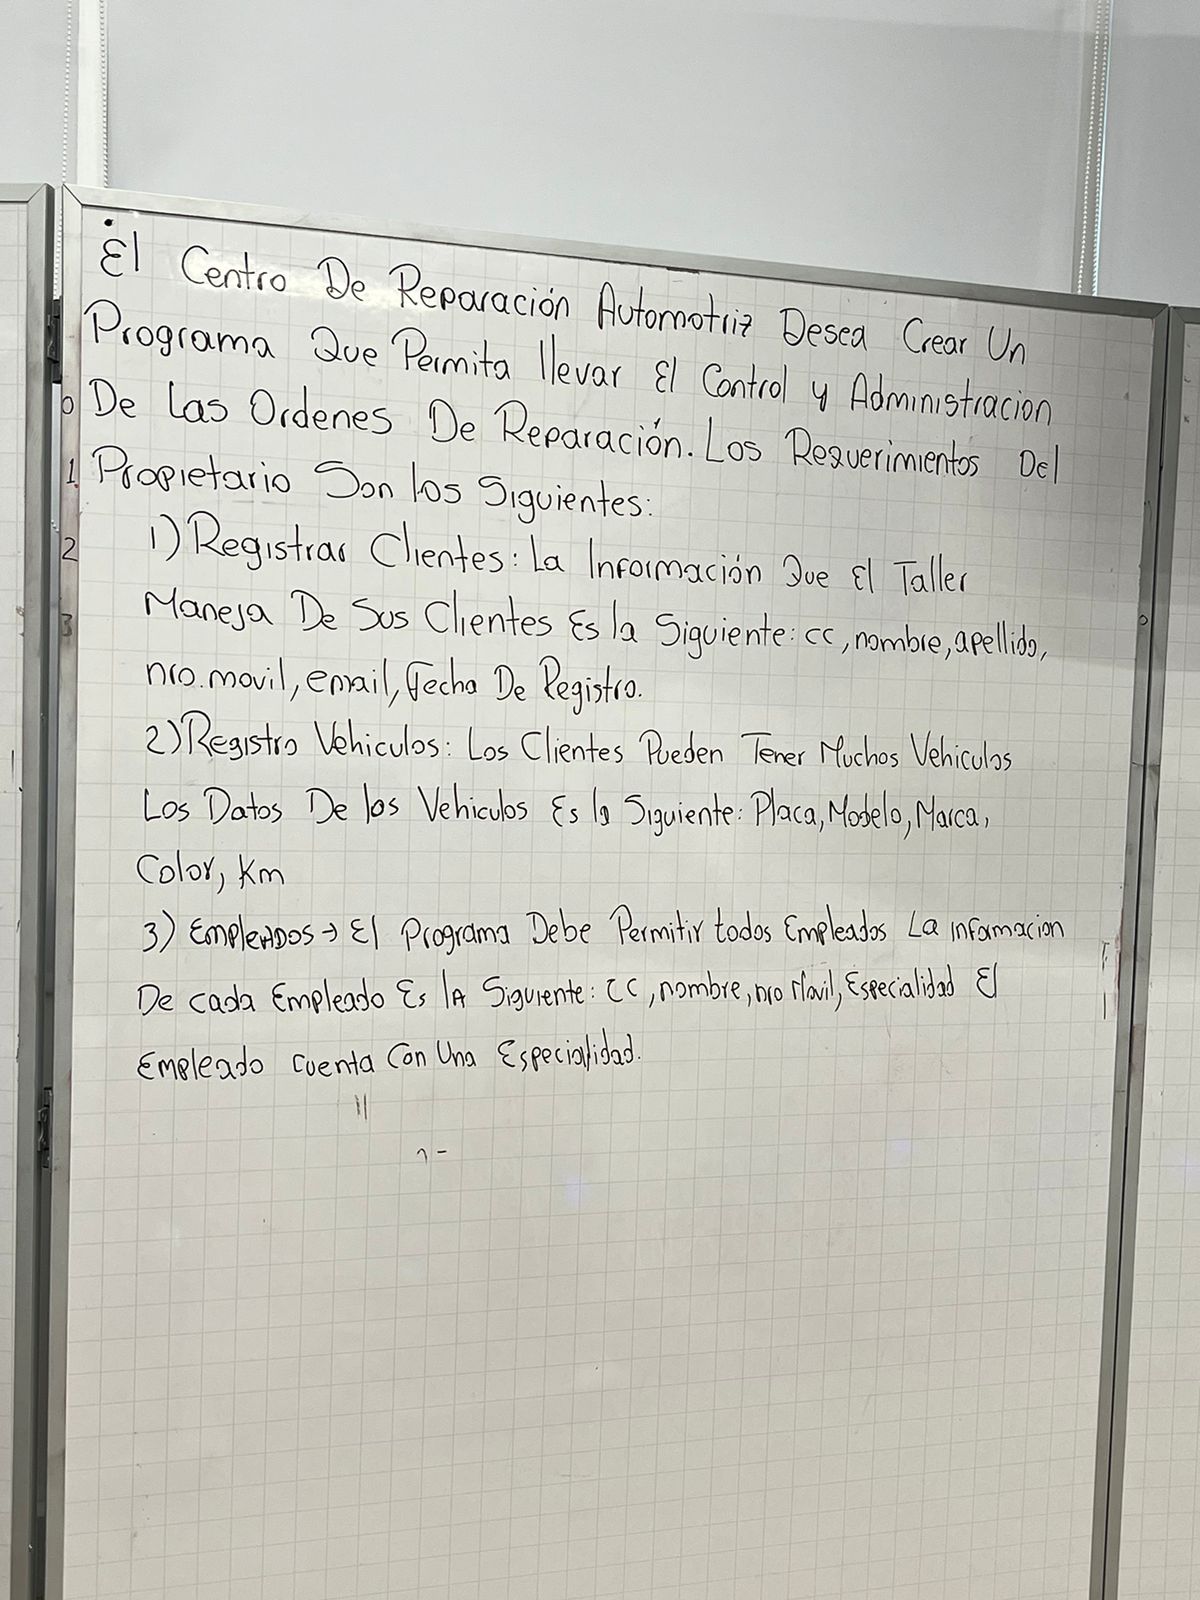 El Centro De Reparación Automotriz Desea Crear Un
Programa Que Permita llevar El Control y Administracion
De Las Ordenes De Reparación. Los Requerimientos Del
Propietario Son los Siguientes:
1) Registrar Clientes: La Información Que El Taller
Maneja De Sus Clientes Es la Siguiente: cc, nombre, apellido,
nro. movil, email, Fecha De Registro.
2) Registro Vehiculos: Los Clientes Pueden Tener Muchos Vehiculos
Los Datos De los Vehiculos Es la Siguiente: Placa, Modelo, Marca,
Color, Km
3) EmpleADOS → El Programa Debe Permitir todos Empleados La Infamacion
De cada Empleado Es lA Siguiente: CC, nombre, nro Movil, Especialidad El
Empleado cuenta Con Una Especialidad.
0
1
2
3